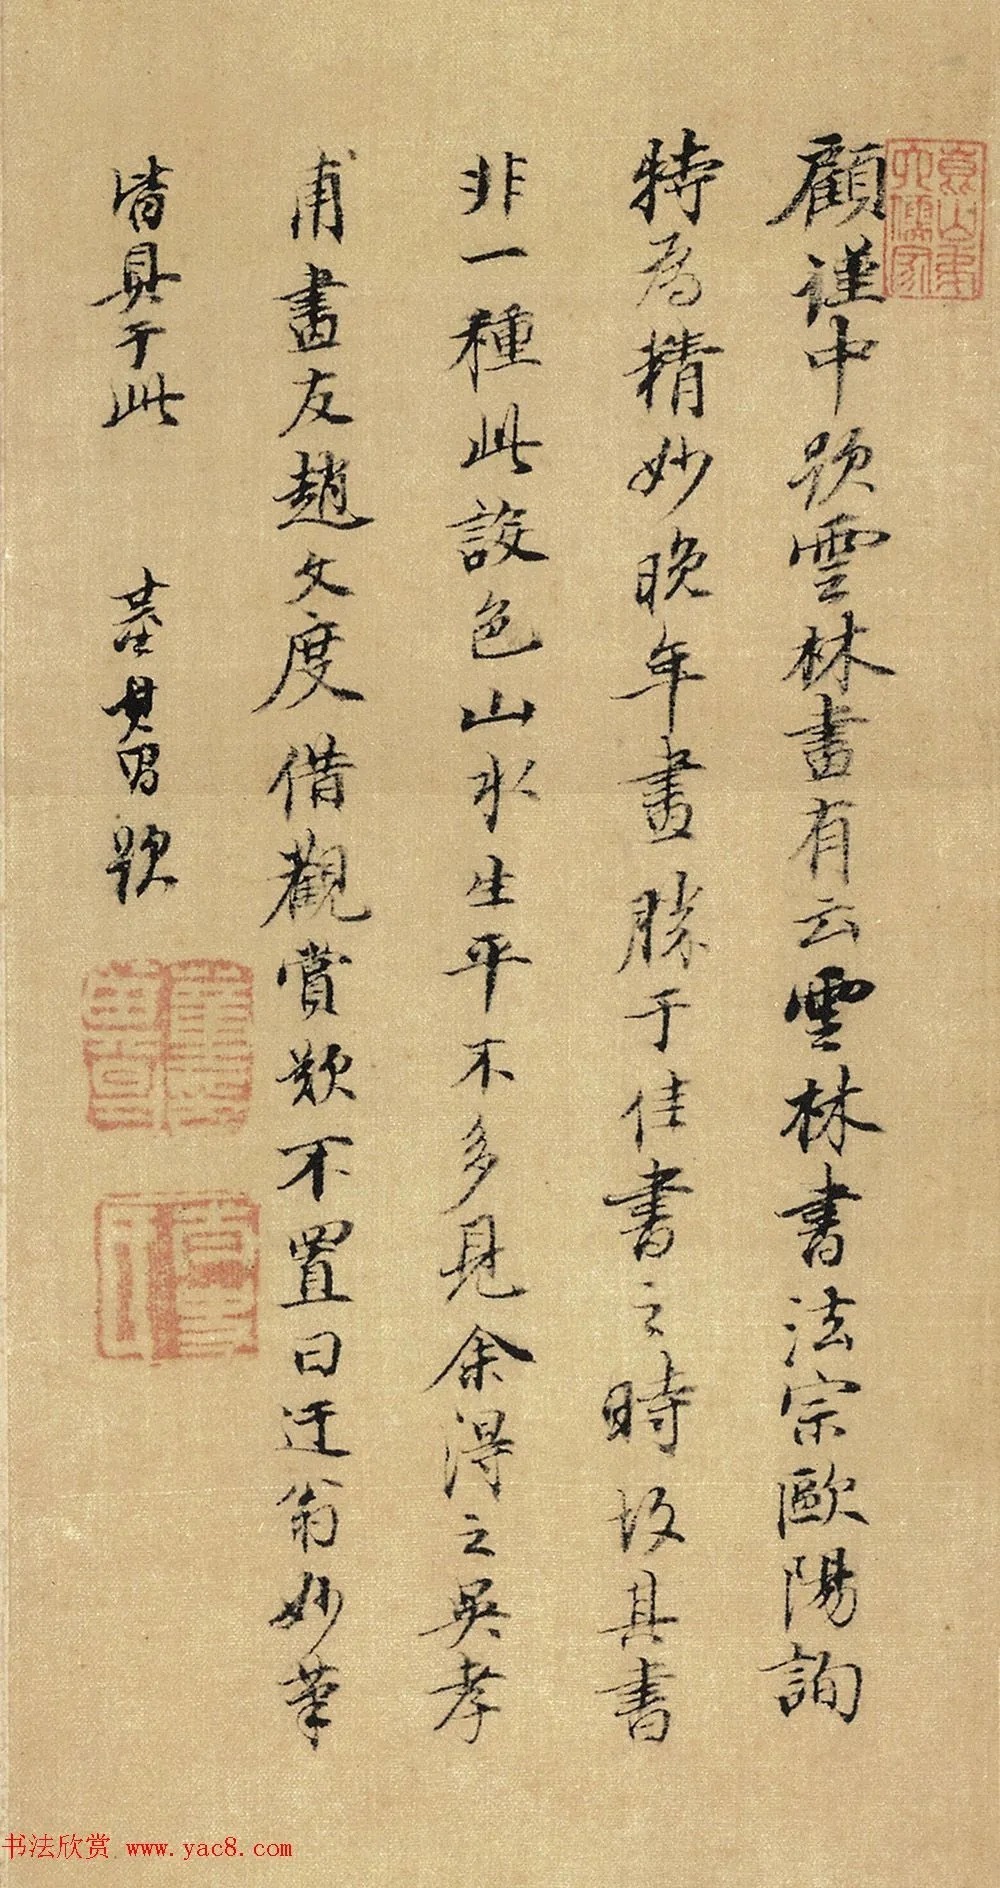 顧謹中跋雲林畫有云雲林書法宗歐陽詢
特為精妙晚年畫勝于佳書之時故其書
非一種此設色山水生平不多見余得之吳孝
甫畫友趙文度借觀賞歎不置曰迂翁妙筆
皆具于此 董其昌跋
書法欣赏 www.yac8.com